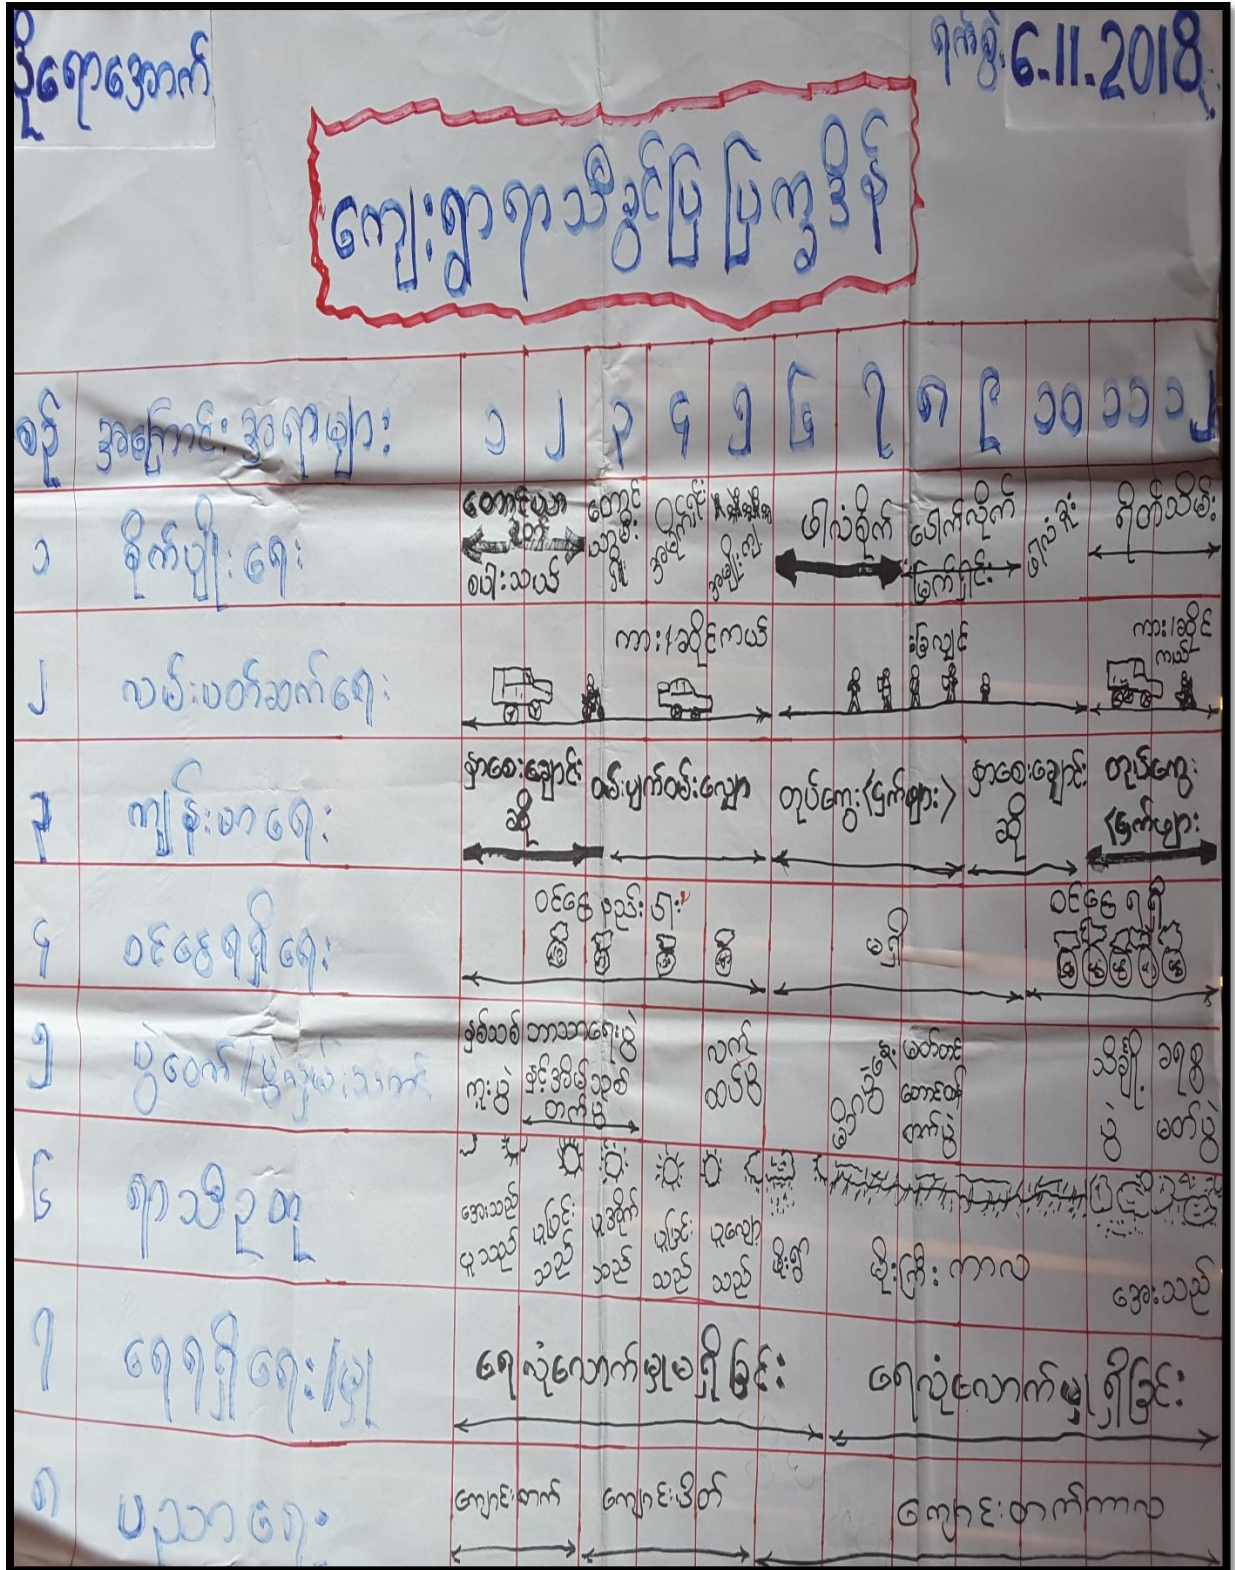 ဒိုရောအောက်
ရက်စွဲ 6.11.2018
ကျေးရွာရာသီခွင်ပြပြက္ခဒိန်
စဉ် အကြောင်းအရာများ ၁ ၂ ၃ ၄ ၅ ၆ ၇ ၈ ၉ ၁၀ ၁၁ ၁၂
၁ စိုက်ပျိုးရေး
တောင်ယာ
စပါးသယ်
ဖါလံစိုက်
ပေါက်လိုက်
မြက်ရှင်း
ဖါလံခူး
ရိတ်သိမ်း
၂ လမ်းပတ်ဆက်ရေး
ကား/ဆိုင်ကယ်
ခြေလျှင်
ကား/ဆိုင်
ကယ်
၃ ကျန်းမာရေး
နှာစေးချောင်း
ဆိုး
ဝမ်းပျက်ဝမ်းလျှော
တုပ်ကွေး(ငှက်ဖျား)
နှာစေးချောင်း
ဆိုး
တုပ်ကွေး
(ငှက်ဖျား
၄ ဝင်ငွေရရှိရေး
ဝင်ငွေနည်းပါး
မရှိ
ဝင်ငွေရရှိ
၅ ပွဲတော်/ပွဲ
နှစ်သစ်
ကူးပွဲ
ဘာသာရေးပွဲ
နှင့်အိမ်သစ်
တက်ပွဲ
လက်
ထပ်ပွဲ
တောင်ထိ
တက်ပွဲ
သီချို
ပွဲ
ခရစ္စ
မတ်ပွဲ
၆ ရာသီဥတု
အေးသည်
ပူသည်
ပူပြင်း
သည်
ပူအိုက်
သည်
ပူပြင်း
သည်
ပူလျော့
သည်
မိုးရွာ
မိုးကြီးကာလ
အေးသည်
၇ ရေရရှိရေး/မှု
ရေလုံလောက်မှုမရှိခြင်း
ရေလုံလောက်မှုရှိခြင်း
၈ ပညာရေး
ကျောင်းတက်
ကျောင်းပိတ်
ကျောင်းတက်ကာလ